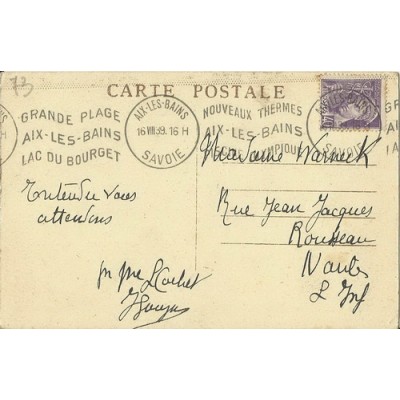 73
CARTE POSTALE
GRANDE PLAGE
AIX-LES-BAINS
LAC DU BOURGET
AIX-LES-BAINS
16 VIII 39. 16 H
SAVOIE
NOUVEAUX THERMES
AIX-LES-BAINS
AIX-LES-BAINS
SAVOIE
GRA
AIX-
LA
Madame Warneck
Rue Jean Jacques
Rousseau
Nantes
L Inf
Entendu vous
attendons